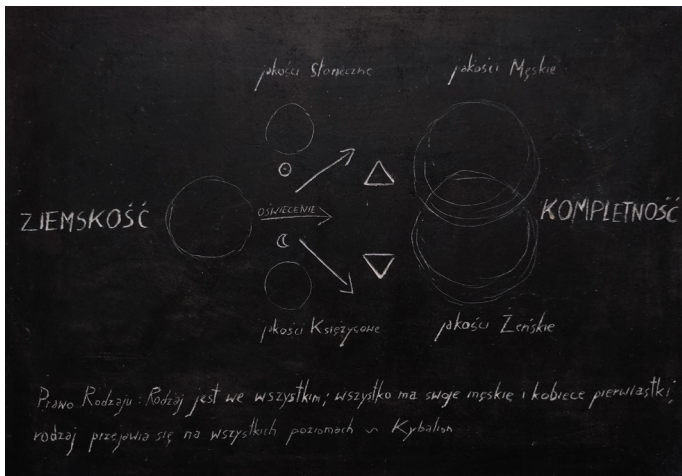 jakości Słoneczne
jakości Męskie
ZIEMSKOŚĆ
OŚWIECENIE
KOMPLETNOŚĆ
jakości Księżycowe
jakości Żeńskie
Prawo Rodzaju: Rodzaj jest we wszystkim; wszystko ma swoje męskie i kobiece pierwiastki;
rodzaj przejawia się na wszystkich poziomach ~ Kybalion